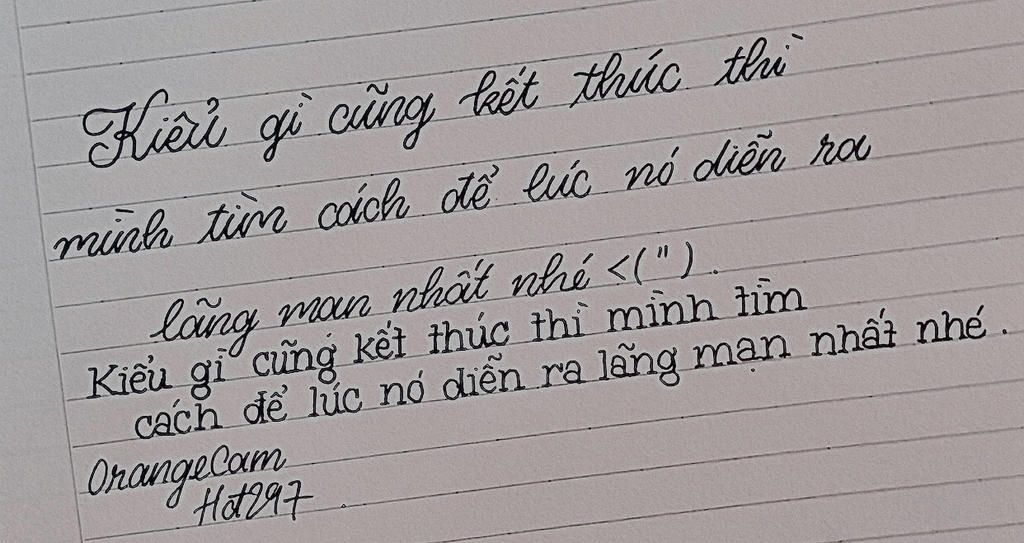 Kiểu gì cũng kết thúc thì
mình tìm cách để lúc nó diễn ra
lãng mạn nhất nhé <(").
Kiểu gì cũng kết thúc thì mình tìm
cách để lúc nó diễn ra lãng mạn nhất nhé.
OrangeCam
Hot297